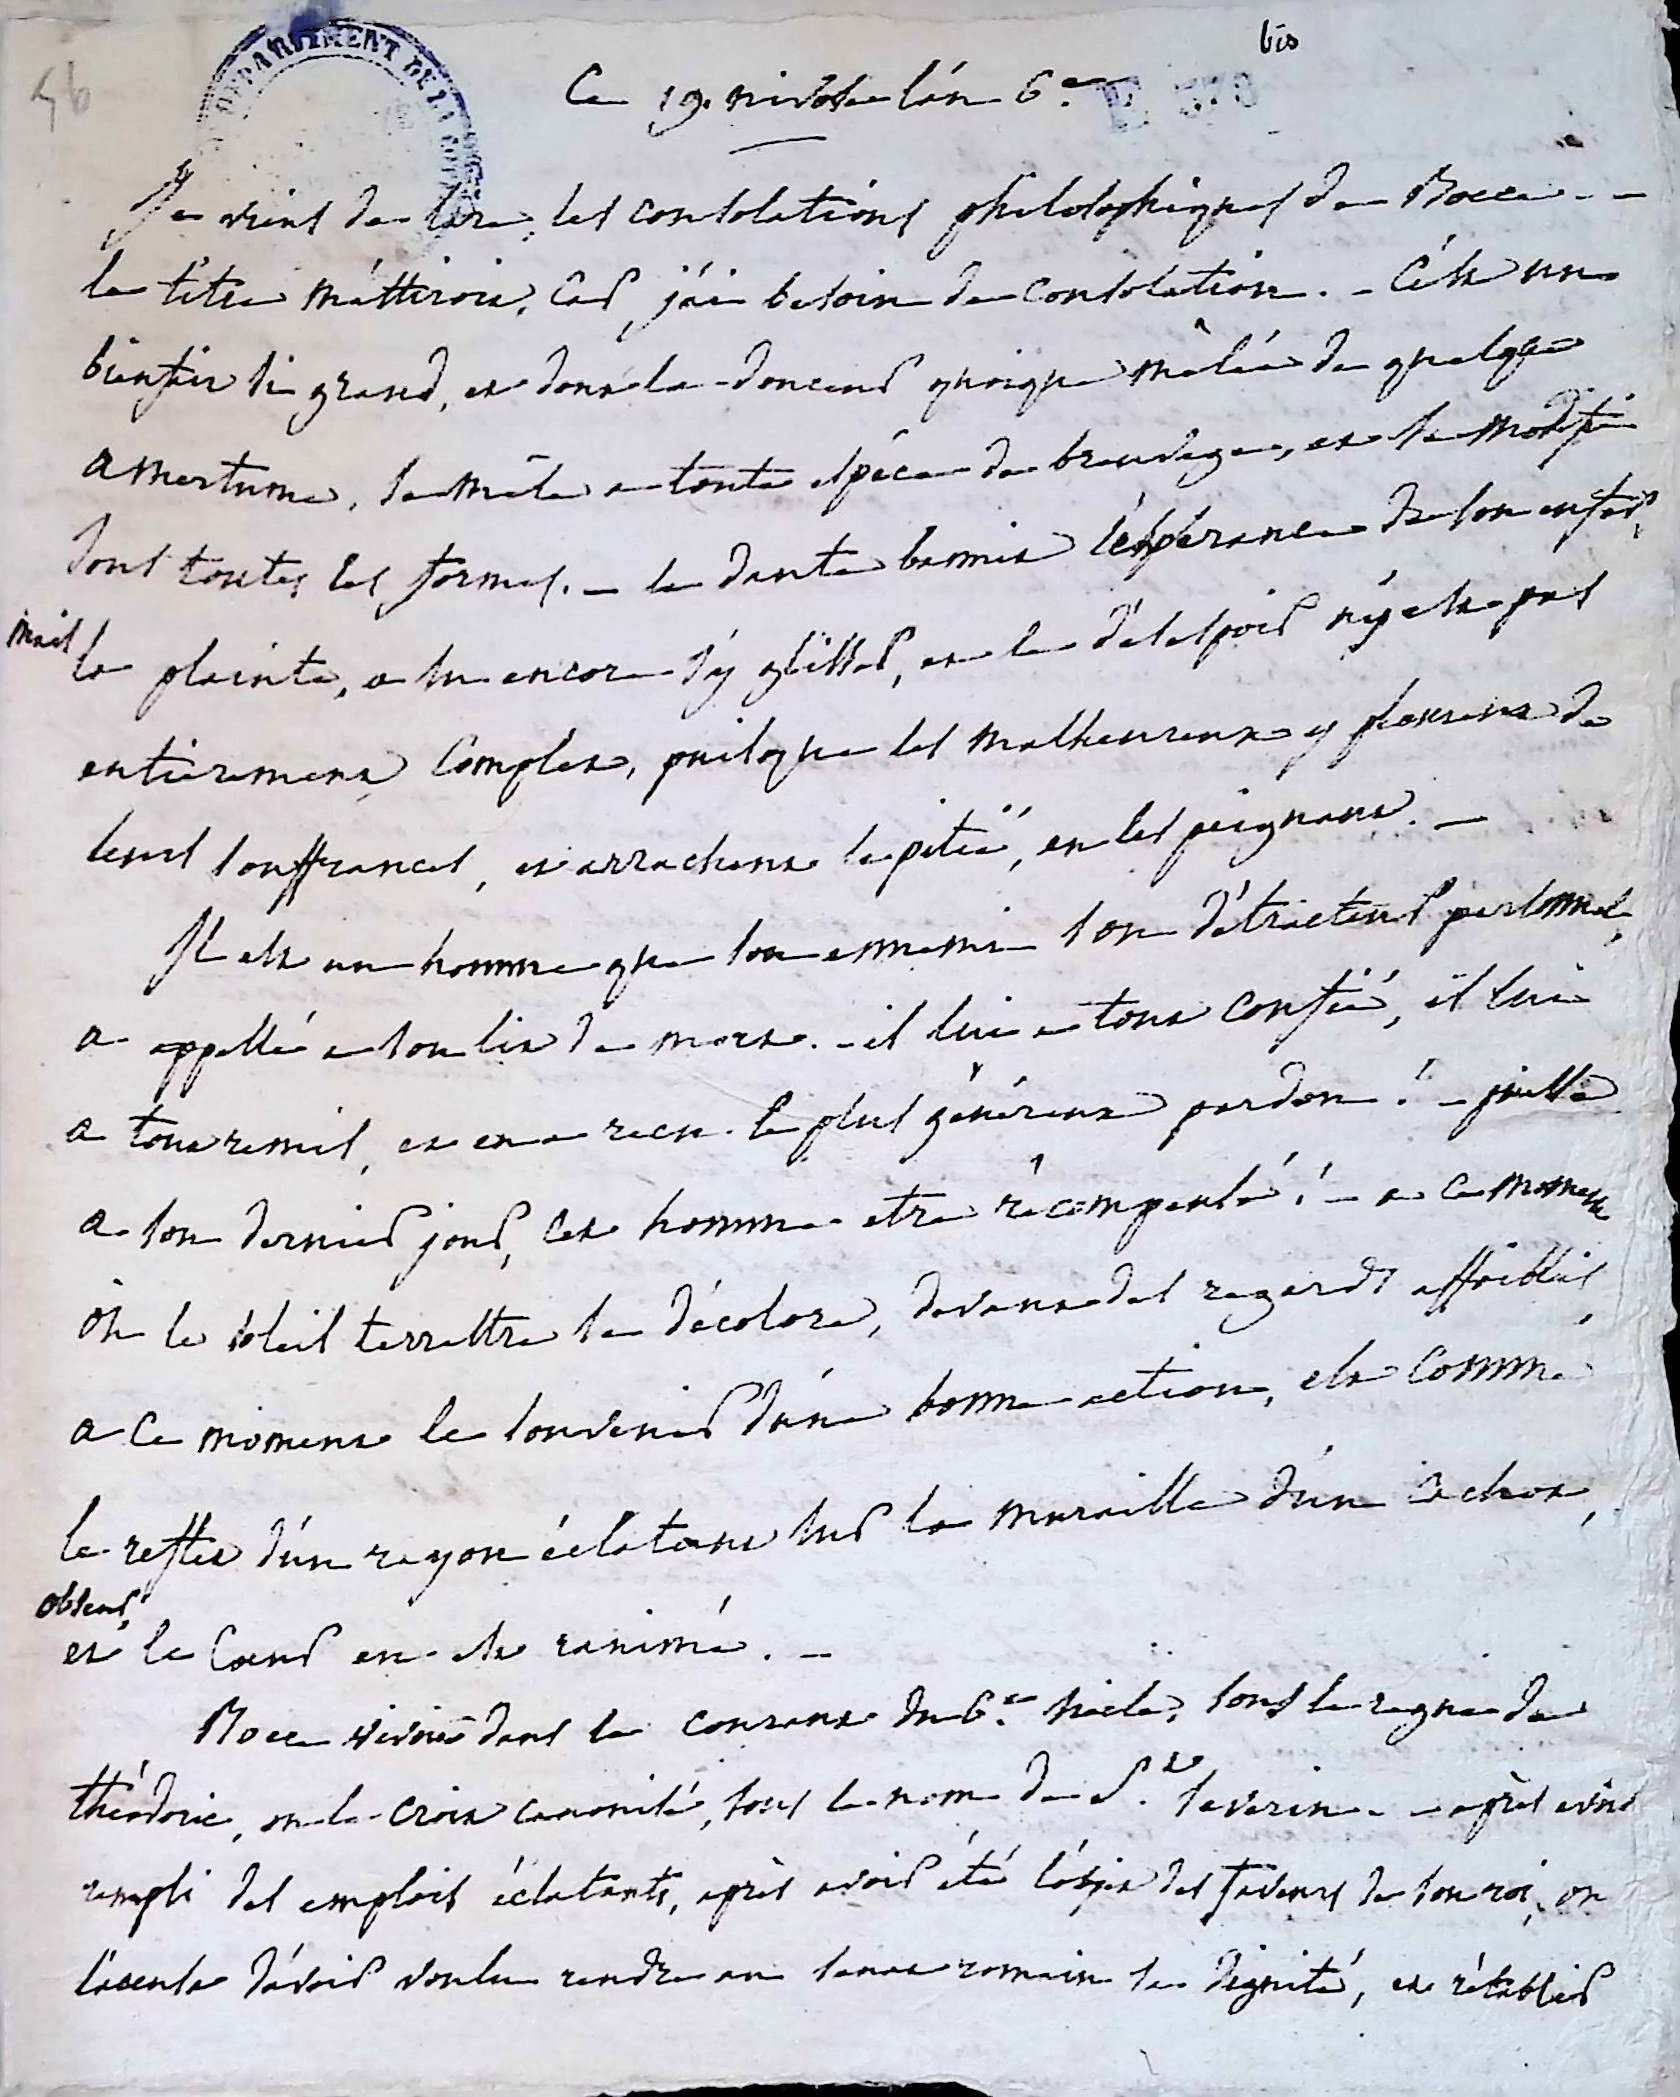 bis
56
DÉPARTEMENT DE LA
Ce 19. nivôse l'an 6.e E 378
Je viens de lire, les consolations philosophiques de Boece - -
le titre m'attiroit, car j'ai besoin de consolation. - C'est un
bienfait si grand, et dont la douceur quoique mêlée de quelque
amertume, se mêle a toute espèce de breuvage, et se modifie
sous toutes les formes. - le dante bannit l'espérance de son enfer,
mais la plainte, a su encore s'y glisser, et le désespoir n'y est pas
entièrement complet, puisque les malheureux y pleurent de
leurs souffrances, et arrachent la pitié, en les peignant. -
Il est un homme que son ennemi son détracteur personnel,
a appellé a son lit de mort. - il lui a tout confié, il lui
a tout remis, et en a recu le plus généreux pardon! - puisse
a son dernier jour, cet homme etre récompensé! - a ce moment
où le soleil terrestre se décolore, devant des regards affoiblis,
a ce moment le souvenir d'une bonne action, est comme
le reflet d'un rayon éclatant sur la muraille d'un cachot,
obscur,
et le coeur en est ranimé. -
Boece vivoit dans le courant du 6.e siècle, sous le regne de
théodoric, on le croit canonisé, sous le nom de St. severin - - après avoir
rempli des emplois éclatants, après avoir été l'objet des faveurs de son roi, on
l'accusa d'avoir voulu rendre au senat romain sa dignité, et rétablir